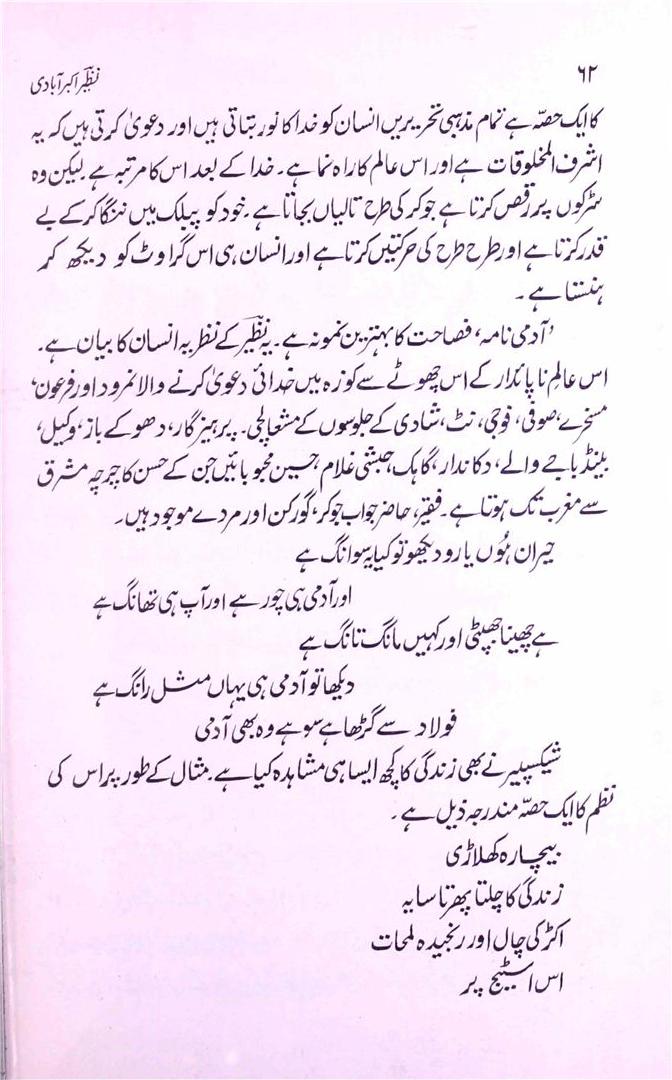 ۶۲
نظیر اکبر آبادی
کا ایک حصّہ ہے تمام مذہبی تحریریں انسان کو خدا کا نور بتاتی ہیں اور دعویٰ کرتی ہیں کہ یہ
اشرف المخلوقات ہے اور اس عالم کا راہ نما ہے۔ خدا کے بعد اس کا مرتبہ ہے لیکن وہ
سڑکوں پر رقص کرتا ہے جوکر کی طرح تالیاں بجاتا ہے۔ خود کو پبلک میں ننگا کر کے بے
قدر کرتا ہے اور طرح طرح کی حرکتیں کرتا ہے اور انسان ہی اس گراوٹ کو دیکھ کر
ہنستا ہے۔
’آدمی نامہ‘ فصاحت کا بہترین نمونہ ہے۔ یہ نظیر کے نظریہ انسان کا بیان ہے۔
اس عالمِ ناپائدار کے اس چھوٹے سے کوزہ میں خدائی دعویٰ کرنے والا نمرود اور فرعون،
مسخرے، صوفی، فوجی، نٹ، شادی کے جلوسوں کے مشعالچی۔ پرہیزگار، دھوکے باز، وکیل،
بینڈ باجے والے، دکاندار، گاہک حبشی غلام، حسین محبوبائیں جن کے حسن کا چرچہ مشرق
سے مغرب تک ہوتا ہے۔ فقیر، حاضر جواب جوکر، گورکن اور مردے موجود ہیں۔
حیران ہُوں یارو دیکھو تو کیا یہ سوانگ ہے
اور آدمی ہی چور ہے اور آپ ہی تھانگ ہے
ہے چھینا جھپٹی اور کہیں مانگ تانگ ہے
دیکھا تو آدمی ہی یہاں مثل رانگ ہے
فولاد سے گڑھا ہے سو ہے وہ بھی آدمی
شیکسپیر نے بھی زندگی کا کچھ ایسا ہی مشاہدہ کیا ہے۔ مثال کے طور پر اس کی
نظم کا ایک حصّہ مندرجہ ذیل ہے۔
بیچارہ کھلاڑی
زندگی کا چلتا پھرتا سایہ
اکڑ کی چال اور رنجیدہ لمحات
اس اسٹیج پر